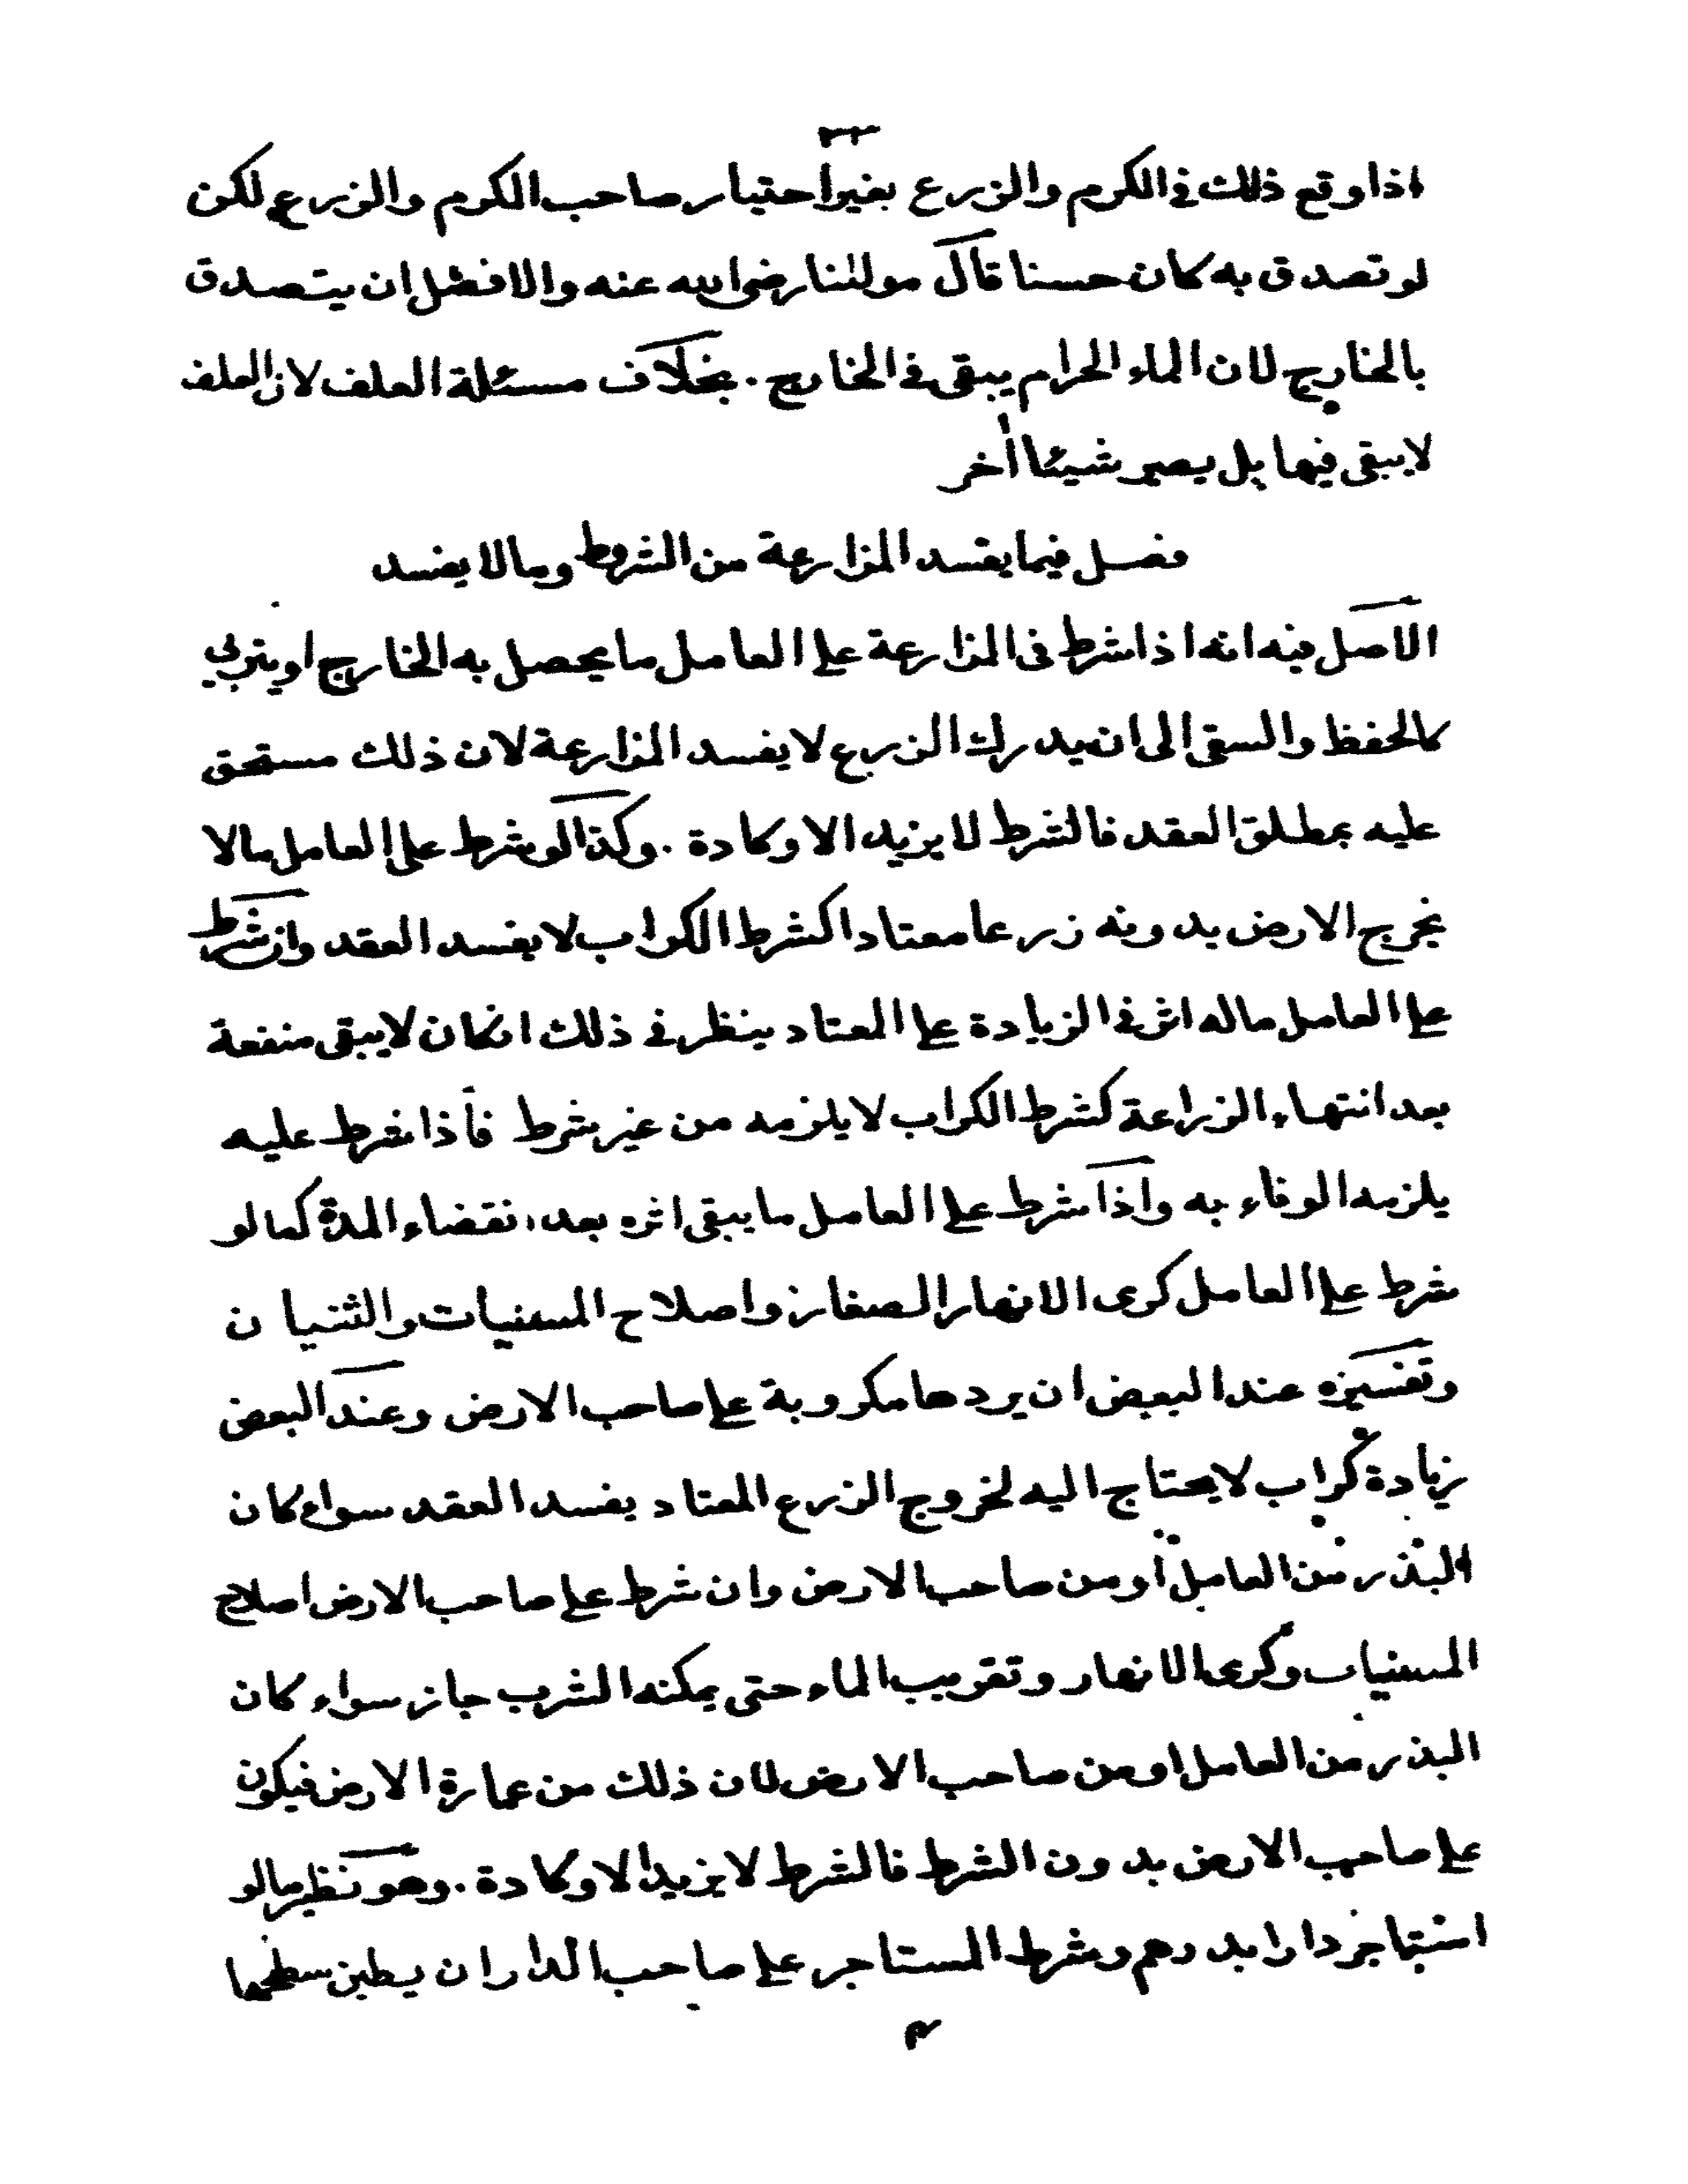 اذا وقع ذلك في الكرم والزرع بغير اختيار صاحب الكرم والزرع لكن
لو تصدق به كان حسنا قال مولٰنا رضى الله عنه والافضل ان يتصدق
بالخارج لان الماء الحرام يبقى في الخارج . بخلاف مسئلة العلف لان العلف
لا يبقى فيها بل يصير شيئا اٰخر
فصل فيما يفسد المزارعة من الشروط وما لا يفسد
الاصل فيه انه اذا شرط في المزارعة على العامل ما يحصل به الخارج او يتربى
كالحفظ والسقى الى ان يدرك الزرع لا يفسد المزارعة لان ذلك مستحق
عليه بمطلق العقد فالشرط لا يزيد الا وكادة . وكذا لو شرط على العامل ما لا
تخرج الارض بدونه زرعا معتادا كشرط الكراب لا يفسد العقد وان شرط
على العامل ما له اثر في الزيادة على المعتاد ينظر في ذلك ان كان لا يبقى منفعة
بعد انتهاء الزراعة كشرط الكراب لا يلزمه من غير شرط فاذا شرط عليه
يلزمه الوفاء به واذا شرط على العامل ما يبقى اثره بعد انقضاء المدة كما لو
شرط على العامل كرى الانهار الصغار واصلاح المسنيات والثنيان
وتفسيره عند البعض ان يردها مكروبة على صاحب الارض وعند البعض
زيادة كراب لا يحتاج اليه لخروج الزرع المعتاد يفسد العقد سواء كان
البذر من العامل او من صاحب الارض وان شرط على صاحب الارض اصلاح
المسنيات وكرى الانهار وتقريب الماء حتى يمكنه الشرب جاز سواء كان
البذر من العامل او من صاحب الارض لان ذلك من عمارة الارض فيكون
على صاحب الارض بدون الشرط فالشرط لا يزيد الا وكادة . وهو نظير ما لو
استاجر دارا بدرهم وشرط المستاجر على صاحب الدار ان يطين سطحها